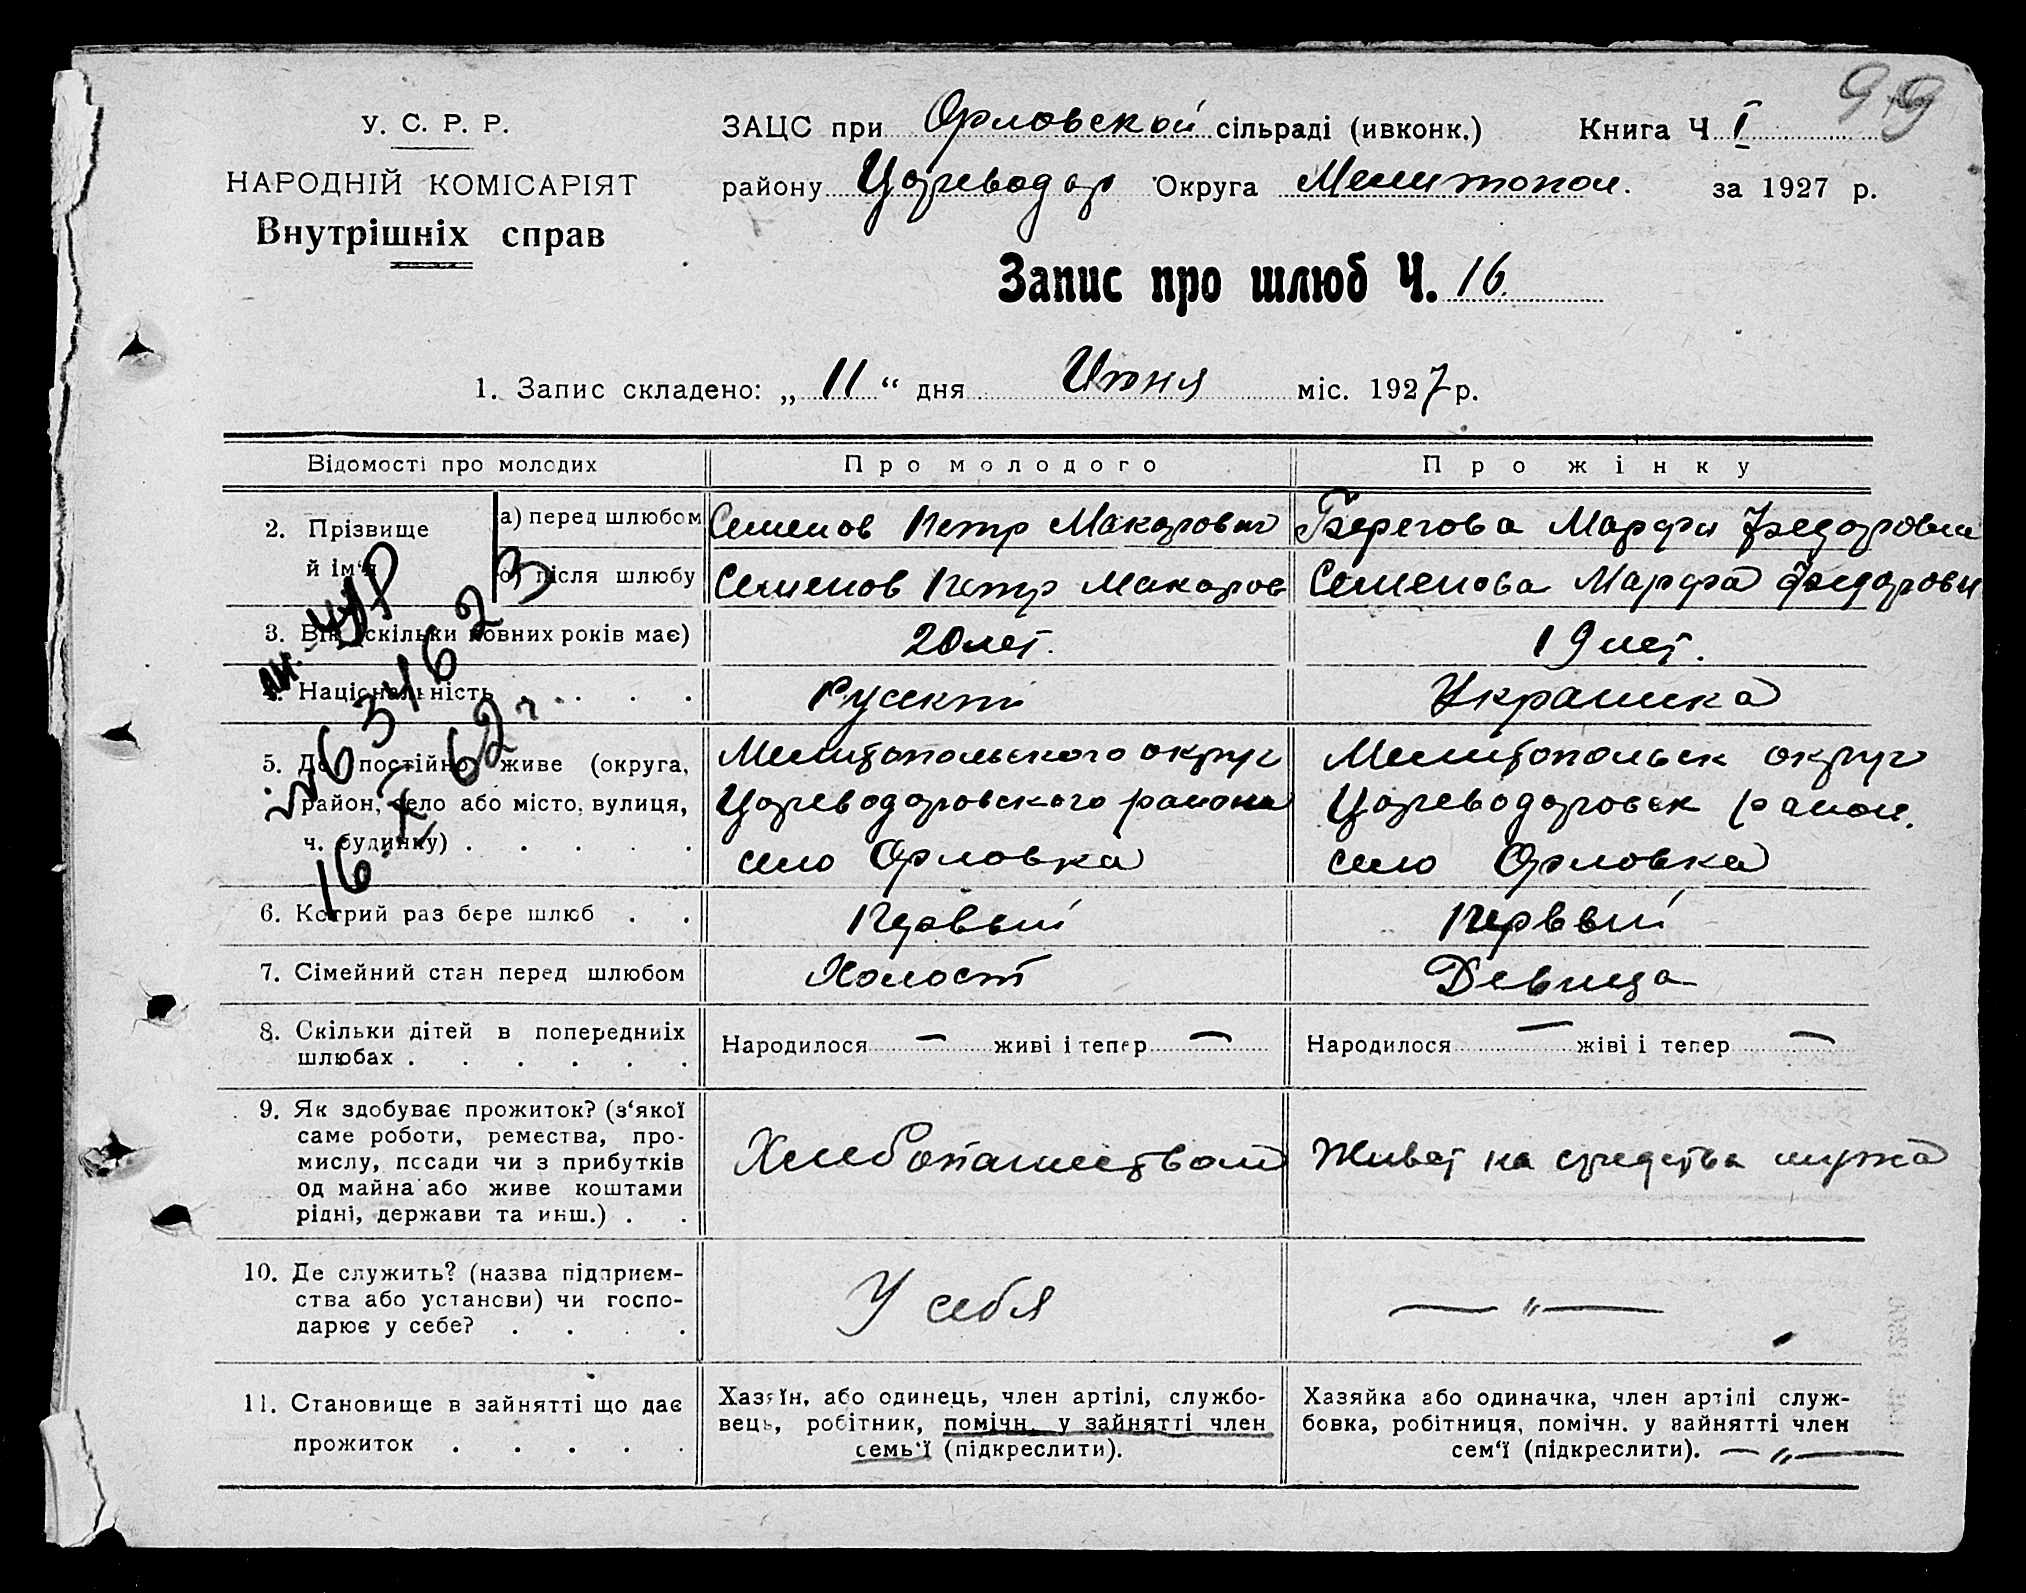 99
У. С. Р. Р.
НАРОДНІЙ КОМІСАРІЯТ
Внутрішніх справ
ЗАЦС при Орловской сільраді (ивконк.) Книга Ч I
району Цареводар Округа Мелитопол. за 1927 р.
Запис про шлюб Ч. 16.
1. Запис складено: „ 11 “ дня Июня міс. 1927 р.
Відомості про молодих
Про молодого
Про жінку
2. Прізвище й ім‘я
а) перед шлюбом
Семенов Петр Макарович
Берегова Марфа Федоровна
б) після шлюбу
Семенов Петр Макаров
Семенова Марфа Федоровн
3. Вік (скільки повних років має)
20 лет.
19 лет.
4. Національність . . . .
Русский
Украинка
5. Де постійно живе (округа,
район, село або місто, вулиця,
ч. будинку) . . . . .
Мелитопольского округ
Цареводаровского района
село Орловка
Мелитопольск округ
Цареводаровск район.
село Орловка
6. Котрий раз бере шлюб . .
Первый
Первый
7. Сімейний стан перед шлюбом
Холост
Девица
8. Скільки дітей в попередниіх
шлюбах . . . . . .
Народилося — живі і тепер —
Народилося — жіві і тепер —
9. Як здобуває прожиток? (з‘якої
саме роботи, ремества, про-
мислу, посади чи з прибутків
од майна або живе коштами
рідні, держави та инш.) . .
Хлебопашеством
Живет на средства мужа
10. Де служить? (назва підприєм-
ства або установи) чи госпо-
дарює у себе? . . . .
У себя
— „ —
11. Становище в зайнятті що дає
прожиток . . . . .
Хазяїн, або одинець, член артілі, службо-
вець, робітник, помічн. у зайнятті член
семь‘ї (підкреслити).
Хазяйка або одиначка, член артілі служ-
бовка, робітниця, помічн. у зайнятті член
сем‘ї (підкреслити). — „ —
634623
16. X 62 г.